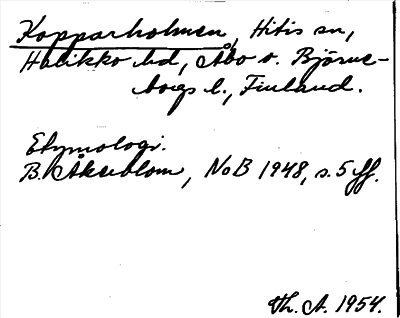 Kopparholmen, Hitis sn,
Halikko hd, Åbo o. Björne-
borgs l., Finland.
Etymologi.
B. Åkerblom, NoB 1948, s. 5 ff.
Th. A. 1954.